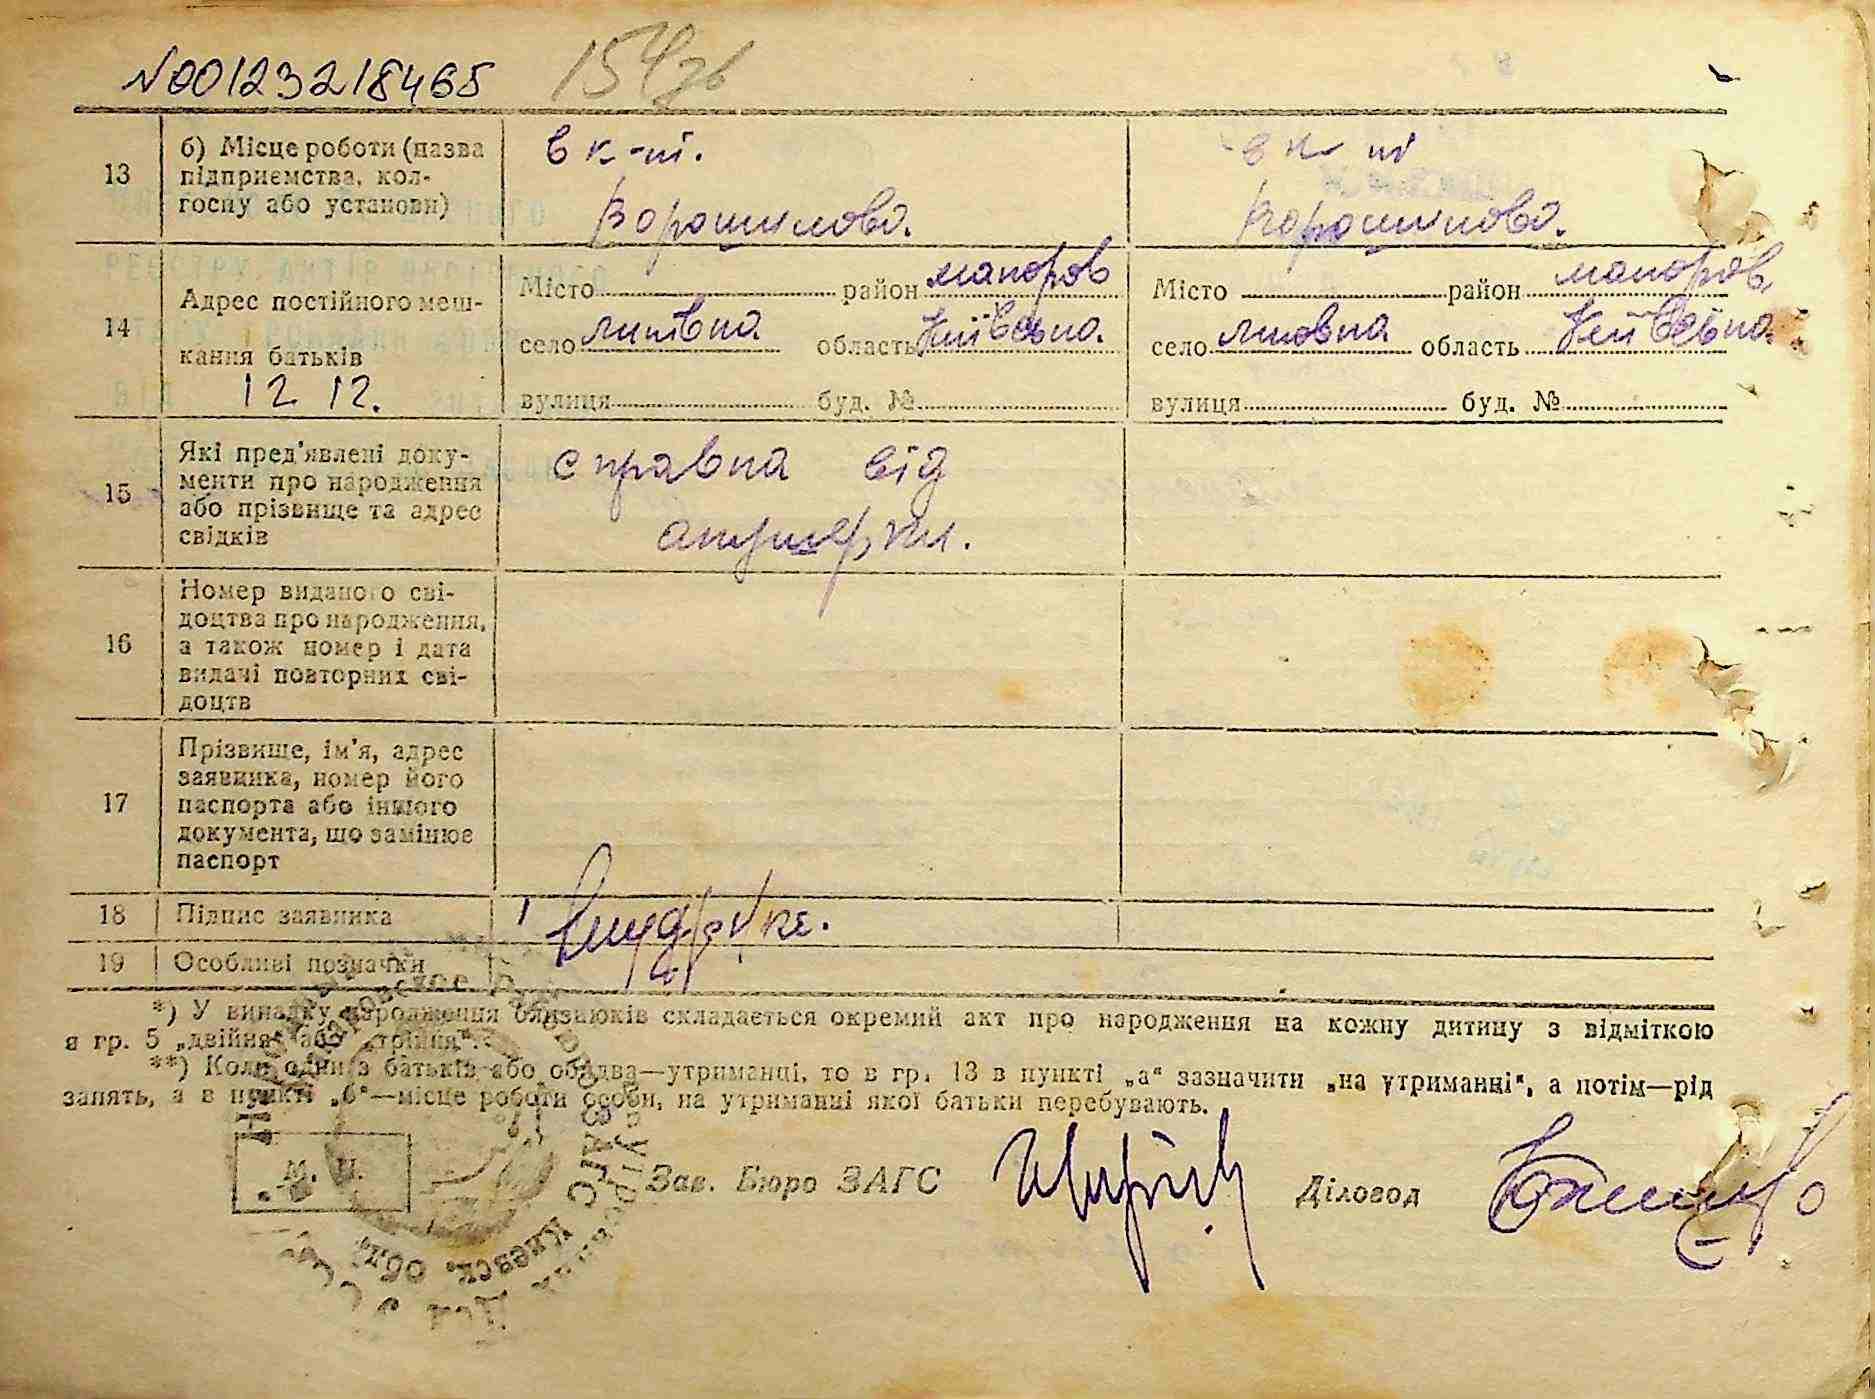 №00123218465 154зв
13 б) Місце роботи (назва підприємства, кол-
госпу або установи)
в к-пі.
Ворошилова.
в к-пі
Ворошилова.
14 Адрес постійного меш-
кання батьків
12 12.
Місто район макаров
село липівка область Київська.
вулиця буд. №
Місто район макаров
село липовка область Київська.
вулиця буд. №
15 Які пред'явлені доку-
менти про народження
або прізвище та адрес
свідків
справка від
акушерки.
16 Номер виданого сві-
доцтва про народження,
а також номер і дата
видачі повторних сві-
доцтв
17 Прізвище, ім'я, адрес
заявника, номер його
паспорта або іншого
документа, що замінює
паспорт
18 Підпис заявника
19 Особливі позначки
*) У випадку народження близнюків складається окремий акт про народження на кожну дитину з відміткою
в гр. 5 „двійня“ або „трійня“.
**) Коли один з батьків або обидва—утриманці, то в гр. 13 в пункті „а“ зазначити „на утриманні“, а потім—рід
занять, а в пункті „б“—місце роботи особи, на утриманні якої батьки перебувають.
М. П.
Зав. Бюро ЗАГС Діловод
ЗАГС Киевск. обл.